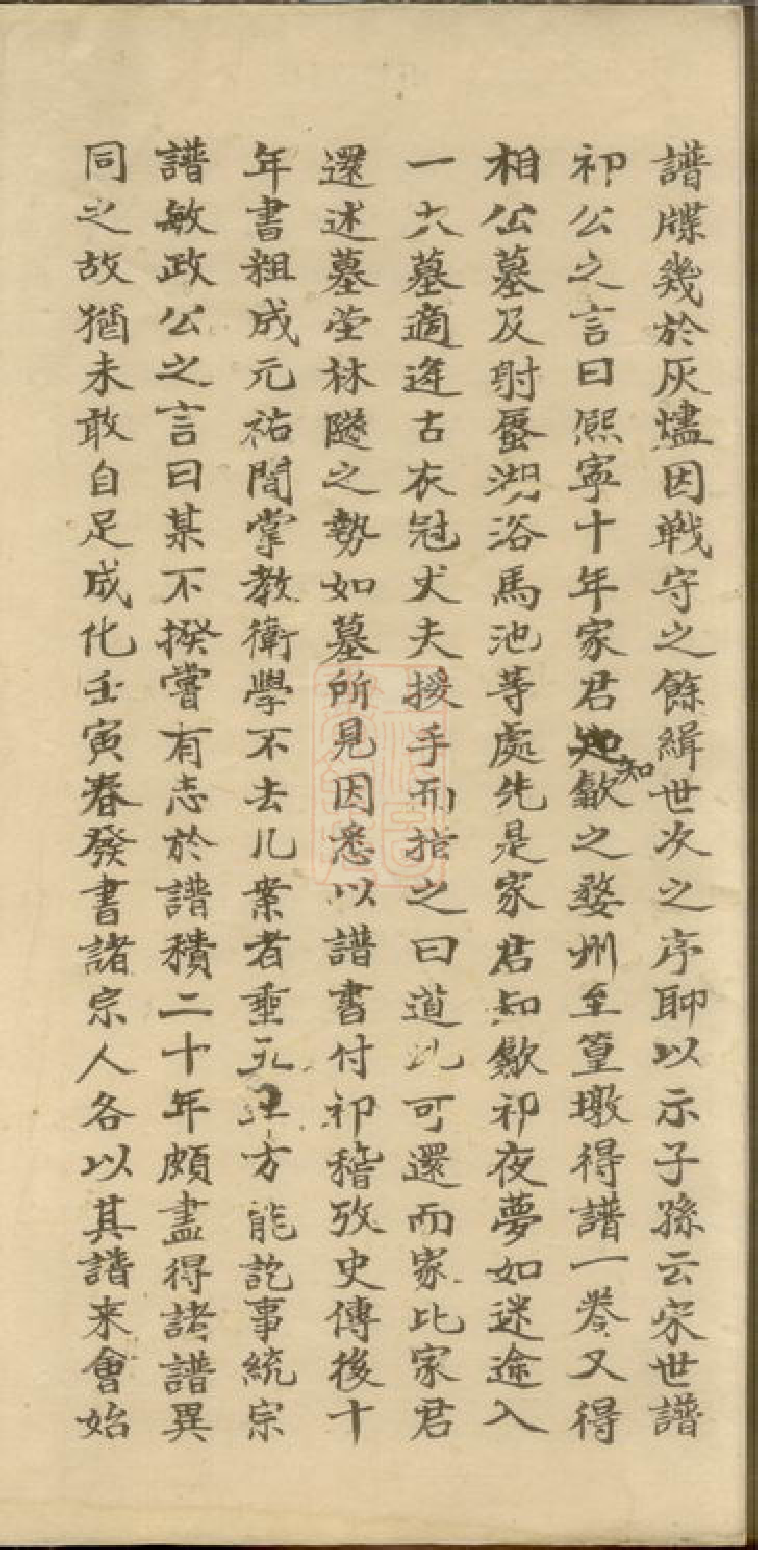 譜牒幾於灰燼因戰守之餘緝世次之序聊以示子孫云宋世譜
祁公之言曰熙寧十年家君知歙之婺州至篁墩得譜一卷又得
相公墓及射蜃湖浴馬池等處先是家君知歙祁夜夢如迷途入
一大墓適逢古衣冠丈夫援手而指之曰道此可還而家比家君
還述墓塋林隧之勢如墓所見因悉以譜書付祁稽攷史傳後十
年書粗成元祐間掌教衛學不去几案者重九年方能訖事統宗
譜敏政公之言曰某不揆嘗有志於譜積二十年頗盡得諸譜異
同之故猶未敢自足成化壬寅春發書諸宗人各以其譜来會始